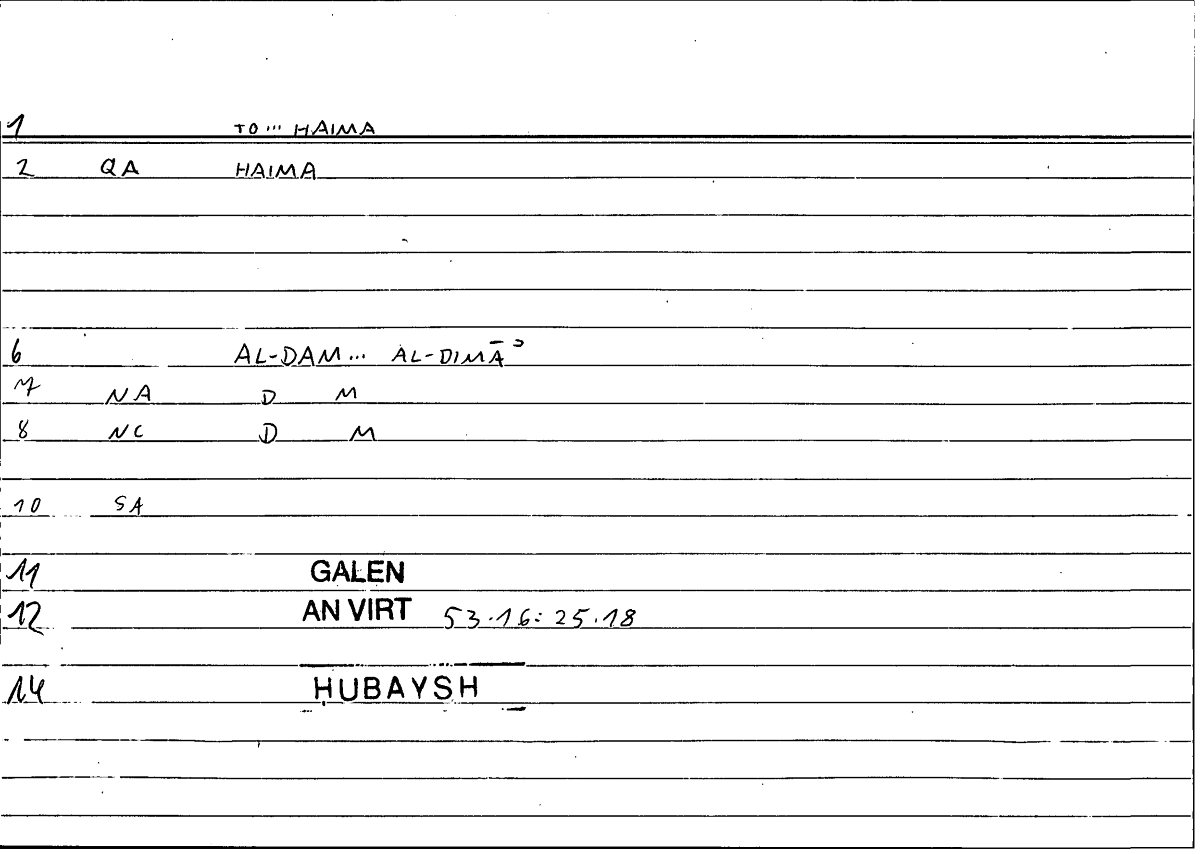 1 TO... HAIMA
2 QA HAIMA
6 AL-DAM... AL-DIMĀʾ
7 NA D M
8 NC D M
10 SA
11 GALEN
12 AN VIRT 53.16:25.18
14 ḤUBAYSH